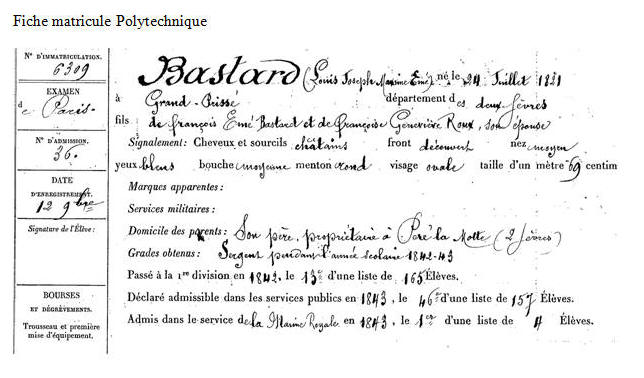 Fiche matricule Polytechnique
N° D'IMMATRICULATION.
6309
EXAMEN
de Paris.
N° D'ADMISSION.
36.
DATE
D'ENREGISTREMENT.
12 9bre
Signature de l'Élève :
BOURSES
ET DÉGRÈVEMENTS.
Trousseau et première
mise d'équipement.
Bastard (Louis Joseph Maxime Emé) né le 24 Juillet 1821
à Grand-Prissé département des deux Sèvres
fils de françois Emé Bastard et de françoise Geneviève Roux, son épouse
Signalement: Cheveux et sourcils châtains front découvert nez moyen
yeux bleus bouche moyenne menton rond visage ovale taille d'un mètre 69 centim
Marques apparentes :
Services militaires :
Domicile des parents : Son père, propriétaire à Peré la Motte (2 Sèvres)
Grades obtenus : Sergent pendant l'année scolaire 1842-43
Passé à la 1re division en 1842, le 13e d'une liste de 165 Élèves.
Déclaré admissible dans les services publics en 1843, le 46e d'une liste de 157 Élèves.
Admis dans le service de la Marine Royale en 1843, le 1er d'une liste de 4 Élèves.